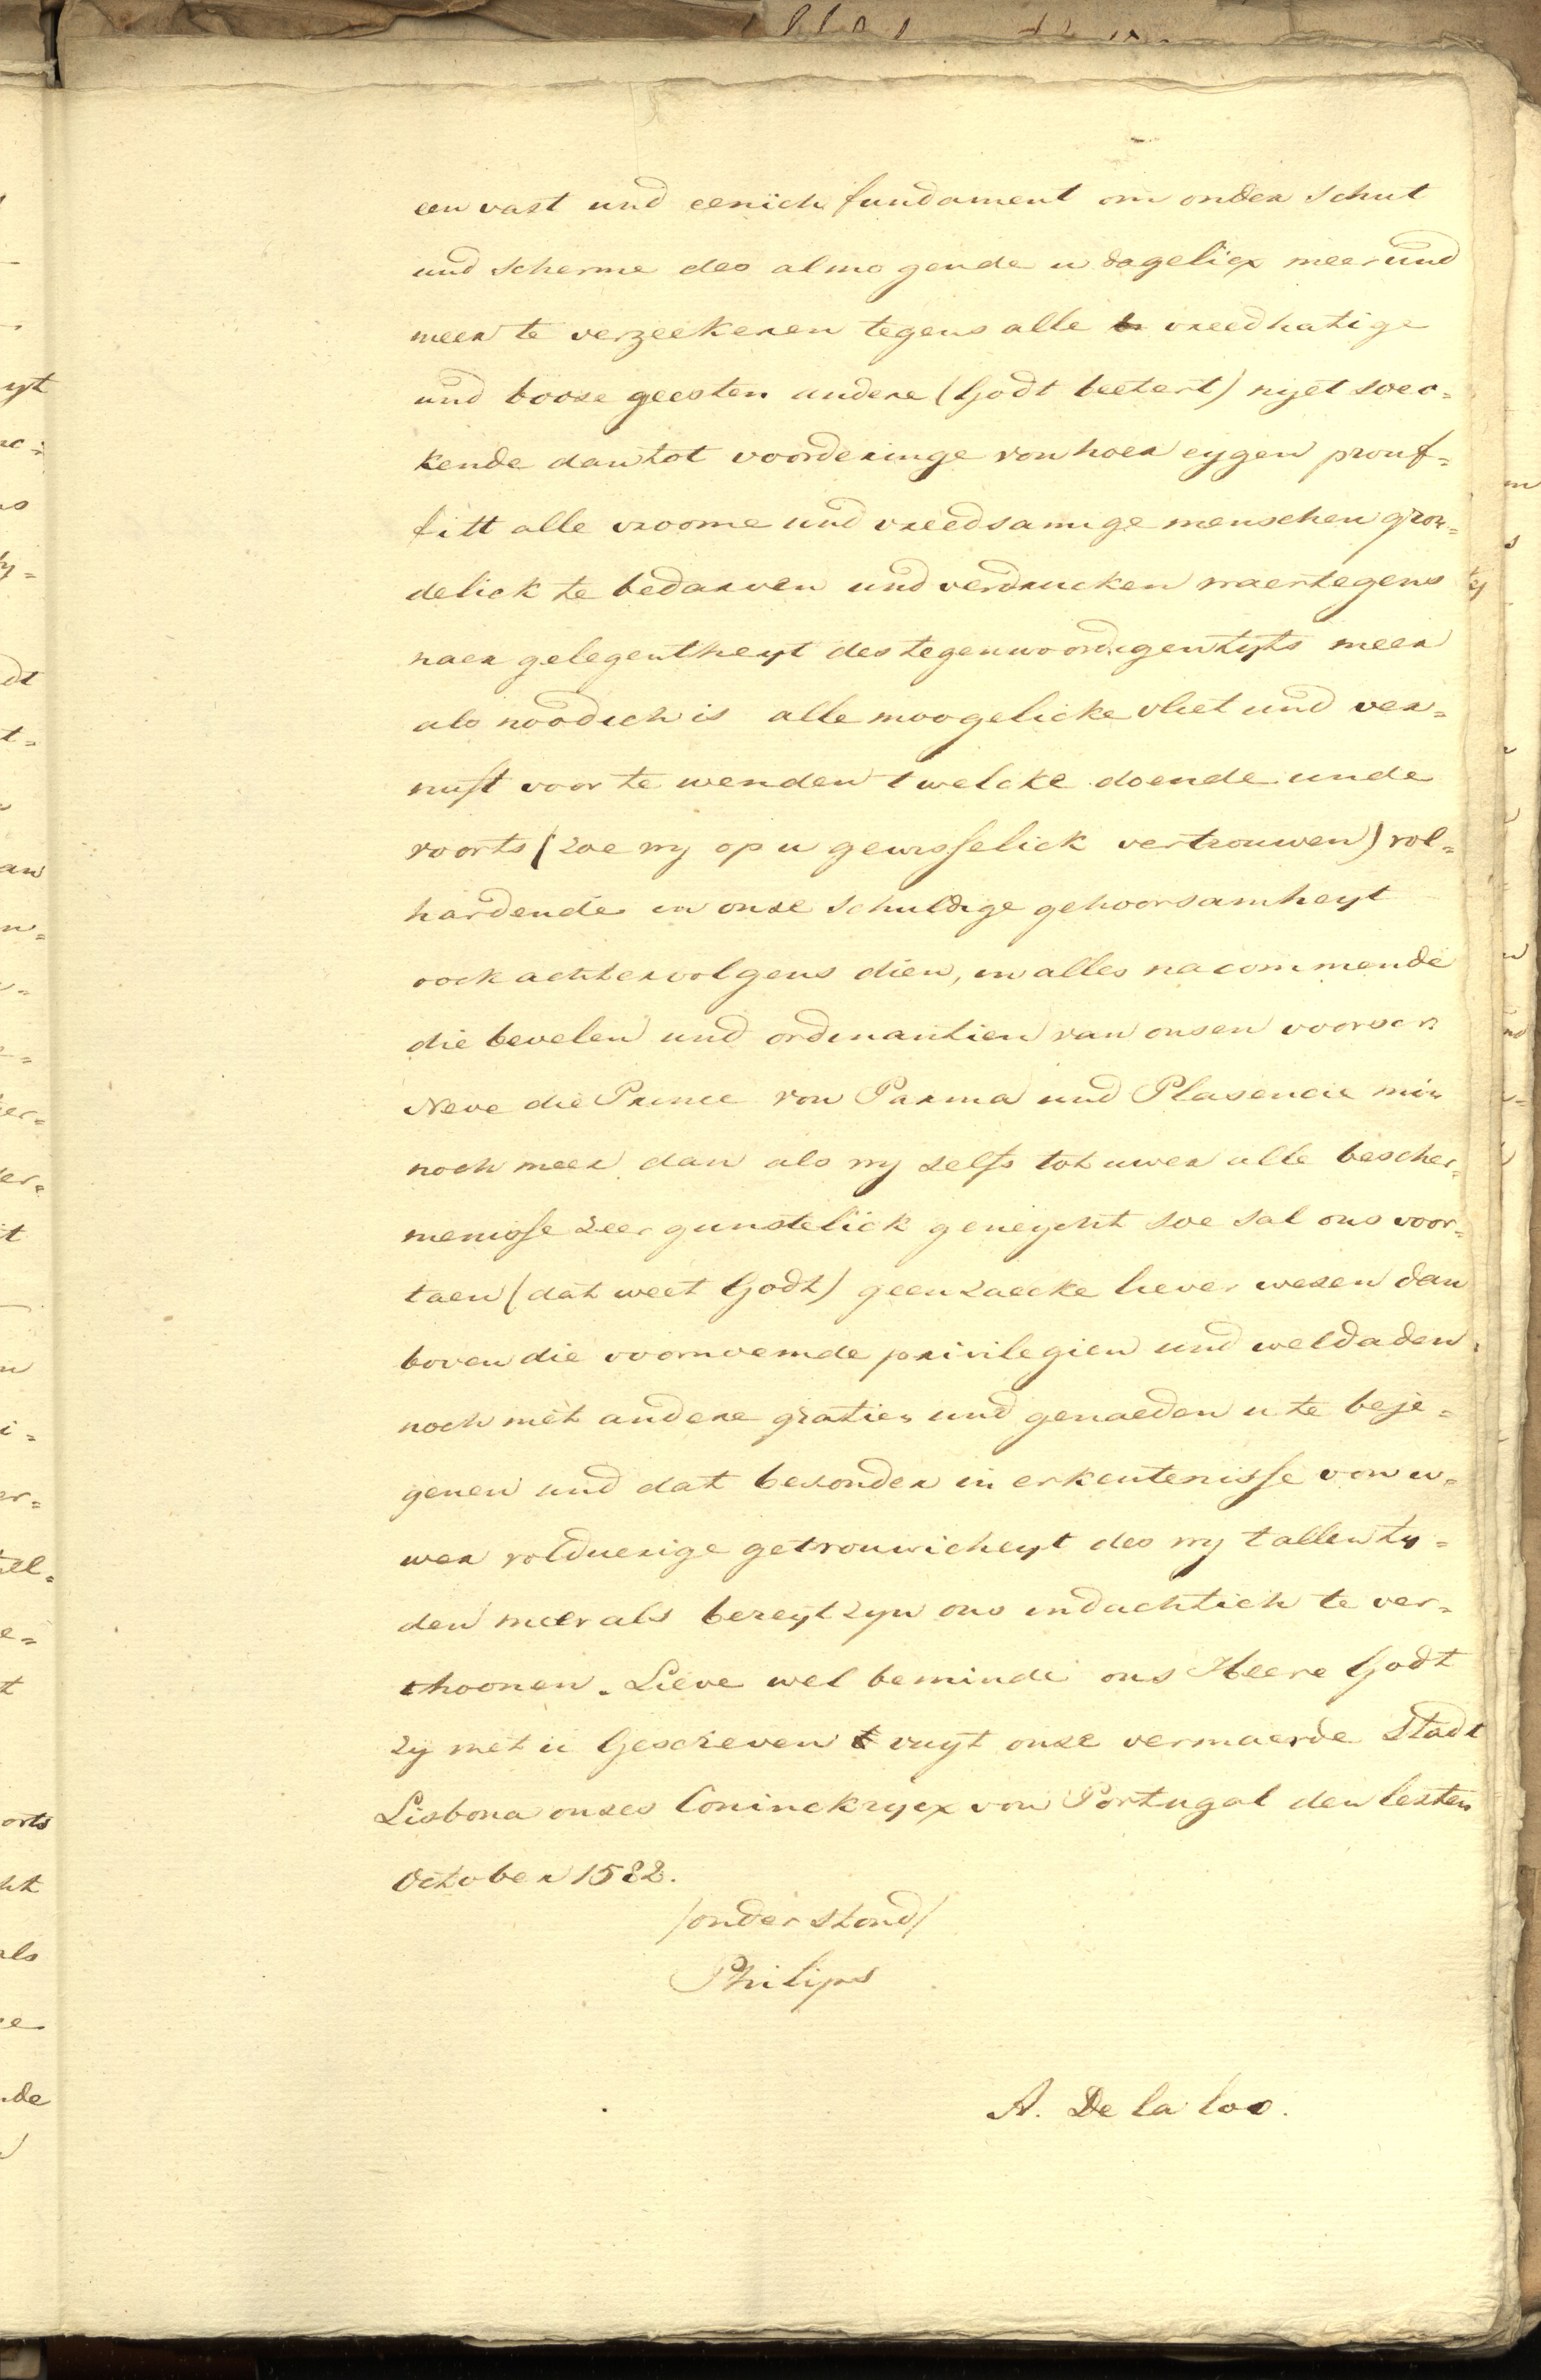 een vast und eenich fundament om onder schut
und scherme des almogende u dageliex meer und
meer te verzeekeren tegens alle vreedhatige
und booze geesten andere (Godt beetert) nyet soec=
kende dan tot voorderinge von hoer eygen prouf=
fitt alle vroome und vreedsamige menschen gron=
delick te bedarven und verdrucken waertegens
naer gelegentheyt des tegenwoordigen tyts meer
als noodich is alle moogelicke vliet und ver=
nuft voor te wenden twelcke doende unde
voorts (zoe wy op u gewisselick vertrouwen) vol=
hardende in onze schuldige gehoorsamheyt
oock achtervolgens dien, in alles nacommende
die bevelen und ordinantien van onsen voorscr.
Neve die Prince von Parma und Plasencie min
noch meer dan als wy zelfs tot uwer alle bescher=
menisse zeer gunstelick geneycht soe sal ons voor=
taen (dat weet Godt) geen zaecke liever wezen dan
boven die voornoemde privilegien und weldaden
noch met andere gratien und genaeden u te beje=
genen und dat bezonder in erkentenisse von u=
wer volduerige getrouwicheyt des wy t allen ty=
den meer als bereyt zyn ons indachtich te ver=
thoonen. Lieve wel beminde ons Heere Godt
zy met u Gescreven vuyt onze vermaerde Stadt
Lisbona onzes Coninckrycx von Portugal den lesten
October 1582.
/onderstond/
Philips
A. De la loo.